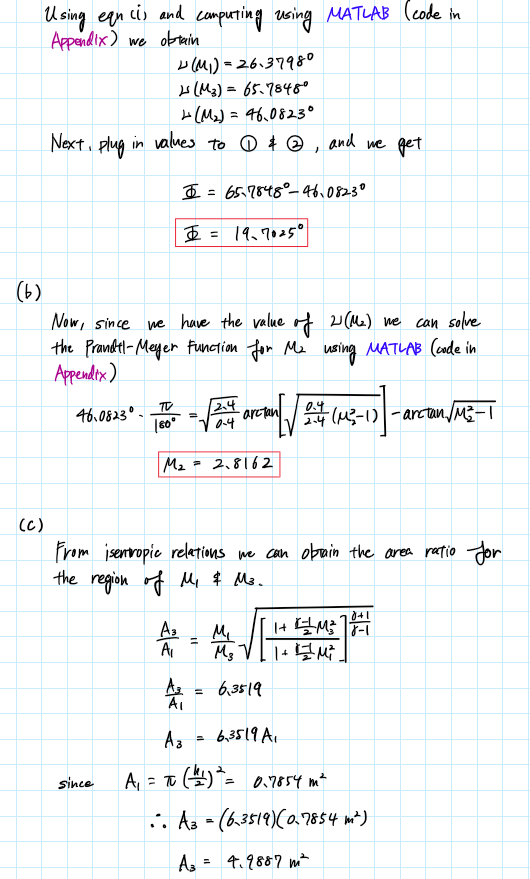 Using eqn (i) and computing using MATLAB (code in
Appendix) we obtain
ν(M₁) = 26.3798°
ν(M₃) = 65.7848°
ν(M₂) = 46.0823°
Next, plug in values to ① & ②, and we get
Φ = 65.7848° − 46.0823°
Φ = 19.7025°
(b)
Now, since we have the value of ν(M₂) we can solve
the Prandtl-Meyer Function for M₂ using MATLAB (code in
Appendix)
46.0823° · π/180° = √(2.4/0.4) arctan[√(0.4/2.4 (M₂²−1))] − arctan√(M₂²−1)
M₂ = 2.8162
(c)
From isentropic relations we can obtain the area ratio for
the region of M₁ & M₃.
A₃/A₁ = M₁/M₃ √([(1 + (γ−1)/2 M₃²)/(1 + (γ−1)/2 M₁²)]^((γ+1)/(γ−1)))
A₃/A₁ = 6.3519
A₃ = 6.3519 A₁
since A₁ = π (h₁/2)² = 0.7854 m²
∴ A₃ = (6.3519)(0.7854 m²)
A₃ = 4.9887 m²